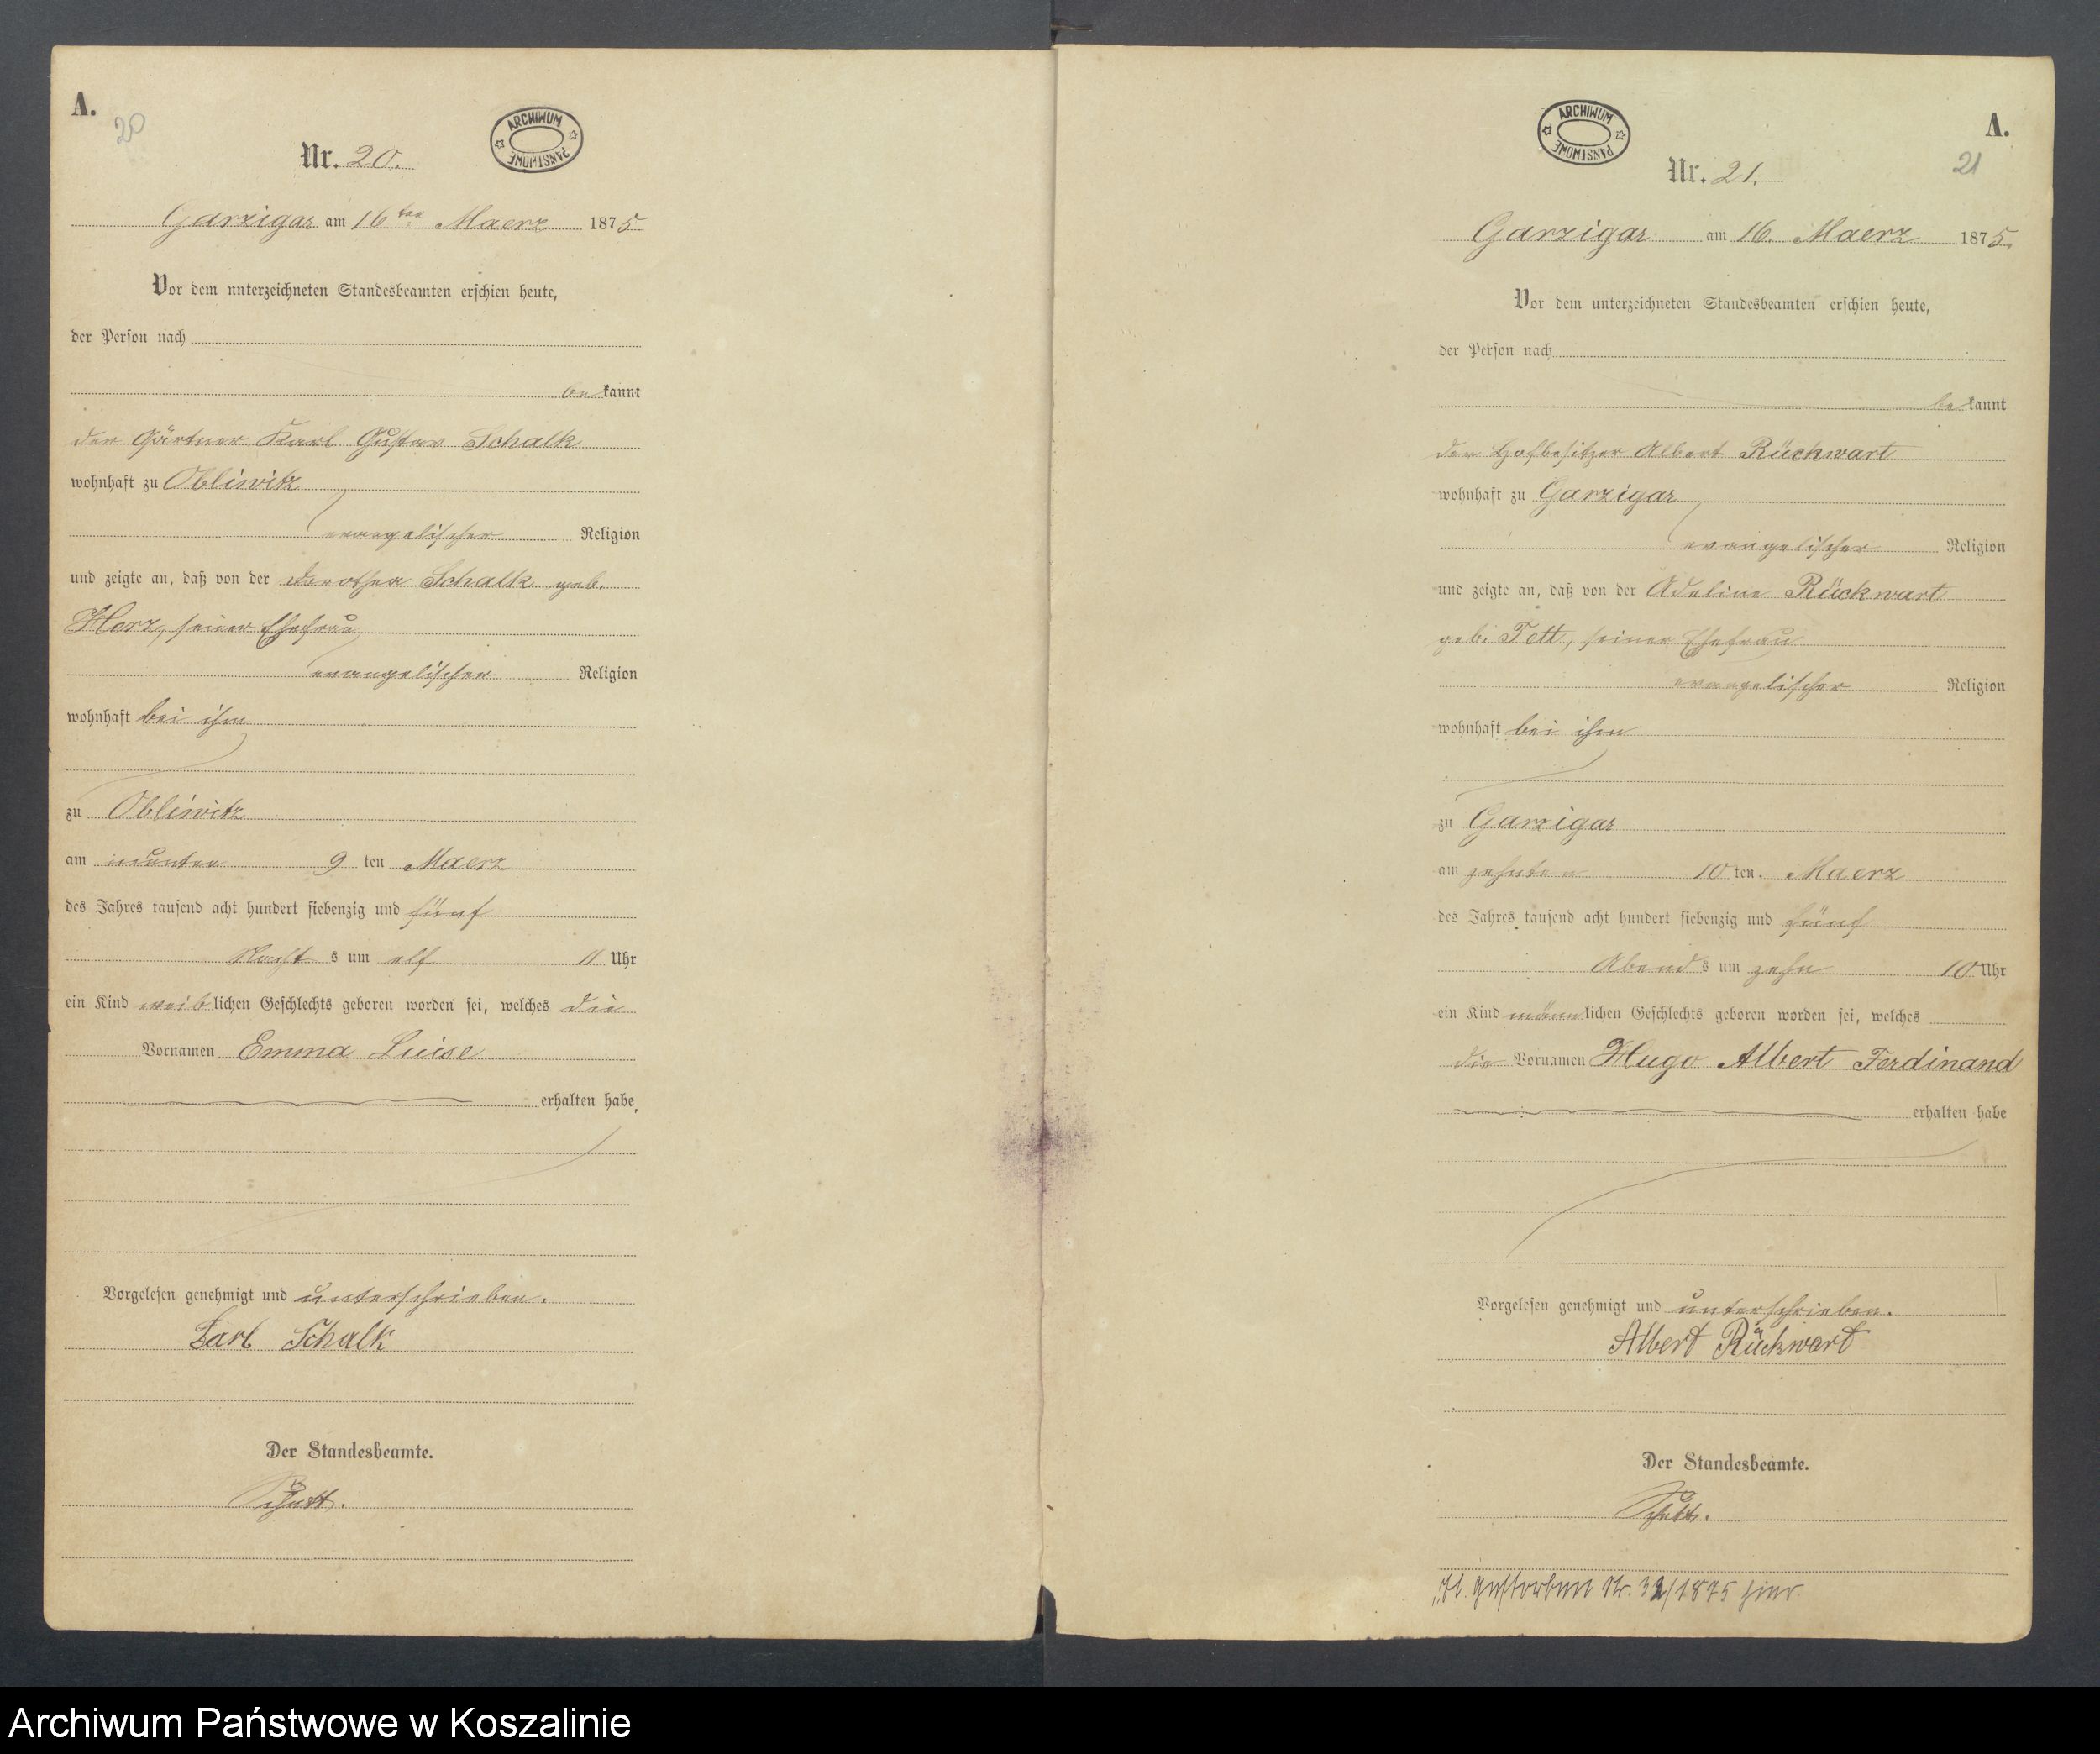 A.
20
ARCHIWUM PAŃSTWOWE
Nr. 20.
Garzigar am 16ten Maerz 1875
Vor dem unterzeichneten Standesbeamten erschien heute,
der Person nach
be kannt
der Gärtner Karl Gustav Schalk
wohnhaft zu Obliwitz
evangelischer Religion
und zeigte an, daß von der Dorothea Schalk geb.
Herz, seiner Ehefrau
evangelischer Religion
wohnhaft bei ihm
zu Obliwitz
am neunten 9 ten Maerz
des Jahres tausend acht hundert siebenzig und fünf
Nacht s um elf 11 Uhr
ein Kind weiblichen Geschlechts geboren worden sei, welches die
Vornamen Emma Luise
erhalten habe,
Vorgelesen genehmigt und unterschrieben.
Karl Schalk
Der Standesbeamte.
Schutt.
A.
21
ARCHIWUM PAŃSTWOWE
Nr. 21.
Garzigar am 16. Maerz 1875.
Vor dem unterzeichneten Standesbeamten erschien heute,
der Person nach
be kannt
der Hofbesitzer Albert Rückwart
wohnhaft zu Garzigar
evangelischer Religion
und zeigte an, daß von der Adeline Rückwart
geb. Fett, seiner Ehefrau
evangelischer Religion
wohnhaft bei ihm
zu Garzigar
am zehnten 10 ten. Maerz
des Jahres tausend acht hundert siebenzig und fünf
Abend s um zehn 10 Uhr
ein Kind männlichen Geschlechts geboren worden sei, welches
die Vornamen Hugo Albert Ferdinand
erhalten habe
Vorgelesen genehmigt und unterschrieben.
Albert Rückwart
Der Standesbeamte.
Schutt.
gestorben Nr. 32/1875 hier.
Archiwum Państwowe w Koszalinie